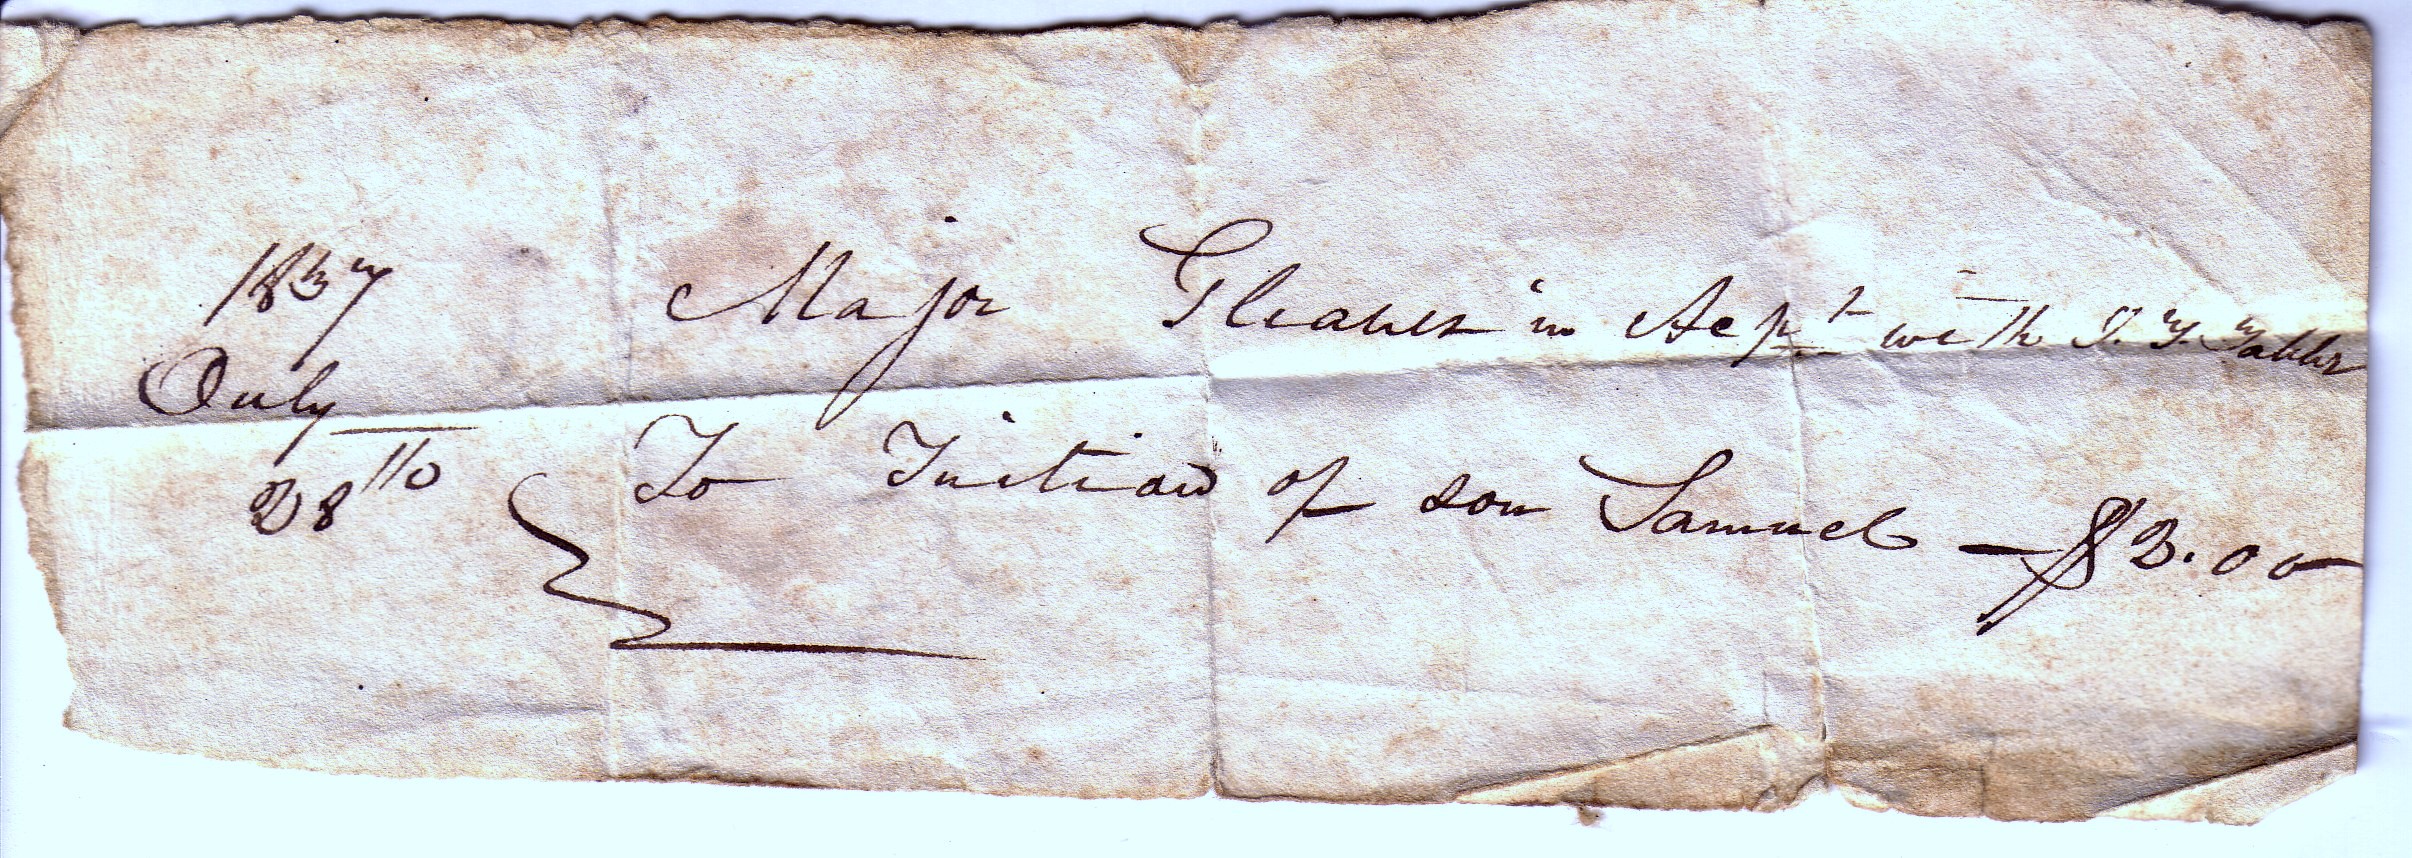 1837 Major Gleaves in Acpt with
July
28th To Tuition of son Samuel — $3.00